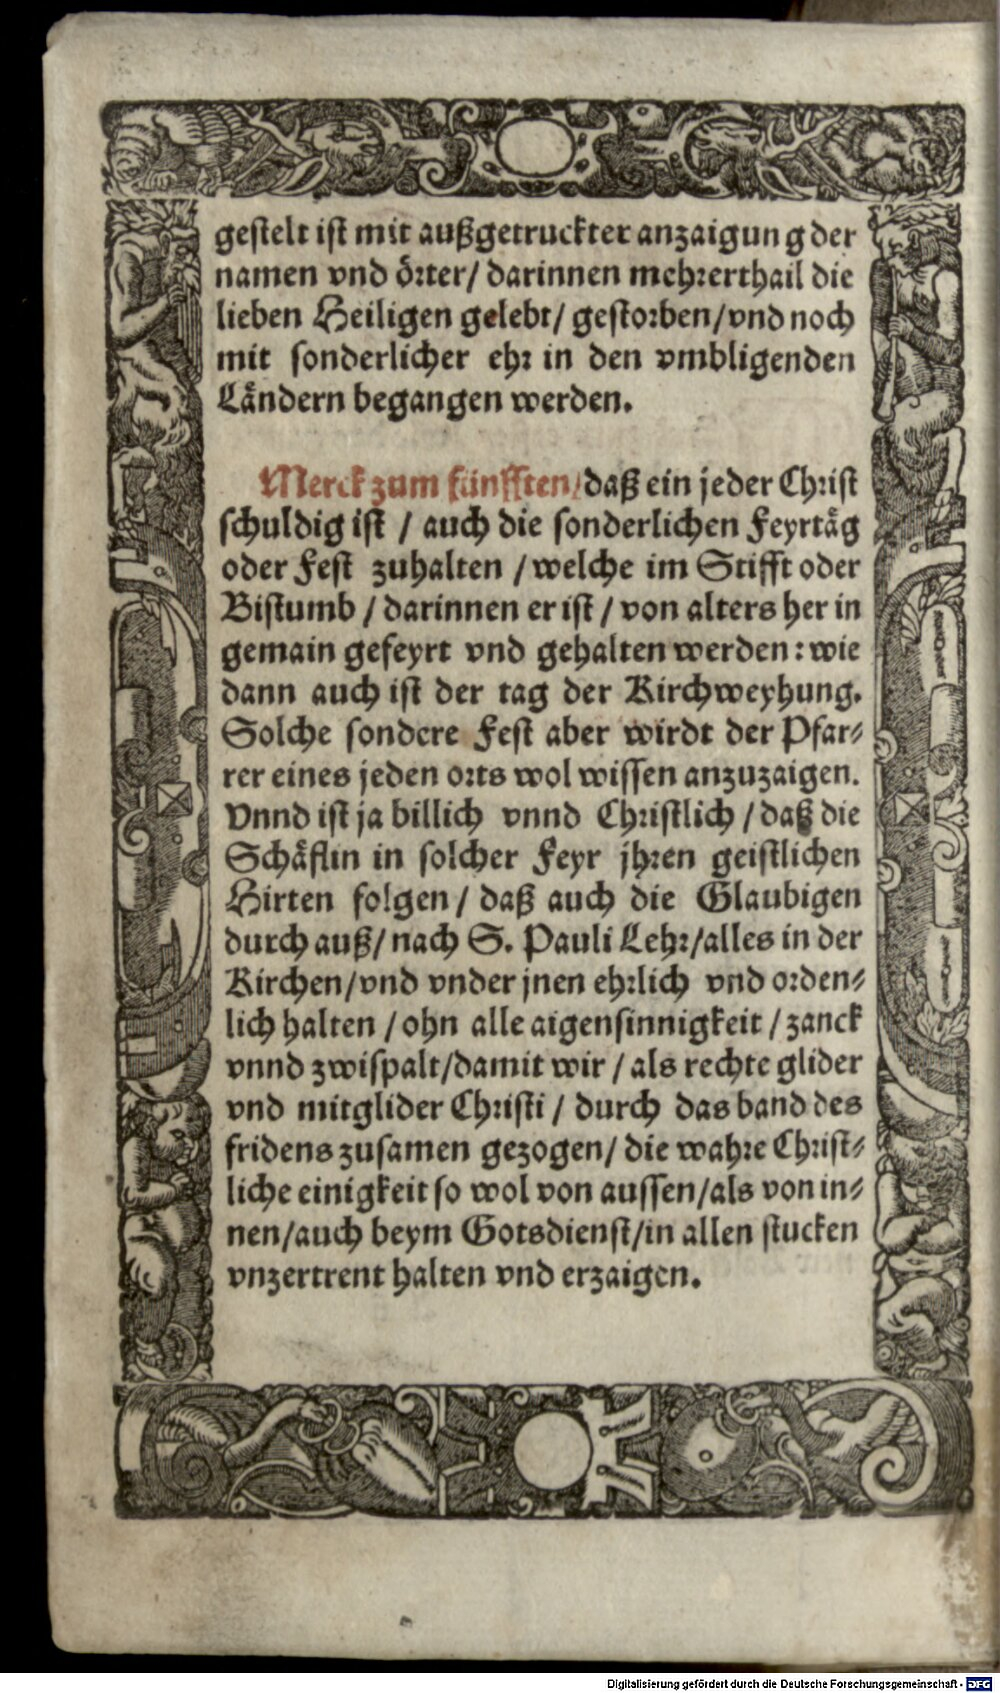 gestelt ist mit außgetruckter anzaigung der
namen vnd örter/ darinnen mehrerthail die
lieben Heiligen gelebt/ gestorben/vnd noch
mit sonderlicher ehr in den vmbligenden
Ländern begangen werden.
Merck zum fünfften/daß ein jeder Christ
schuldig ist / auch die sonderlichen Feyrtäg
oder Fest zuhalten / welche im Stifft oder
Bistumb / darinnen er ist / von alters her in
gemain gefeyrt vnd gehalten werden: wie
dann auch ist der tag der Kirchweyhung.
Solche sondere Fest aber wirdt der Pfar-
rer eines jeden orts wol wissen anzuzaigen.
Vnnd ist ja billich vnnd Christlich / daß die
Schäflin in solcher Feyr jhren geistlichen
Hirten folgen/ daß auch die Glaubigen
durch auß/ nach S. Pauli Lehr/alles in der
Kirchen/vnd vnder jnen ehrlich vnd orden-
lich halten / ohn alle aigensinnigkeit / zanck
vnnd zwispalt/damit wir / als rechte glider
vnd mitglider Christi / durch das band des
fridens zusamen gezogen/ die wahre Christ-
liche einigkeit so wol von aussen/als von in-
nen/auch beym Gotsdienst/in allen stucken
vnzertrent halten vnd erzaigen.
Digitalisierung gefördert durch die Deutsche Forschungsgemeinschaft - DFG